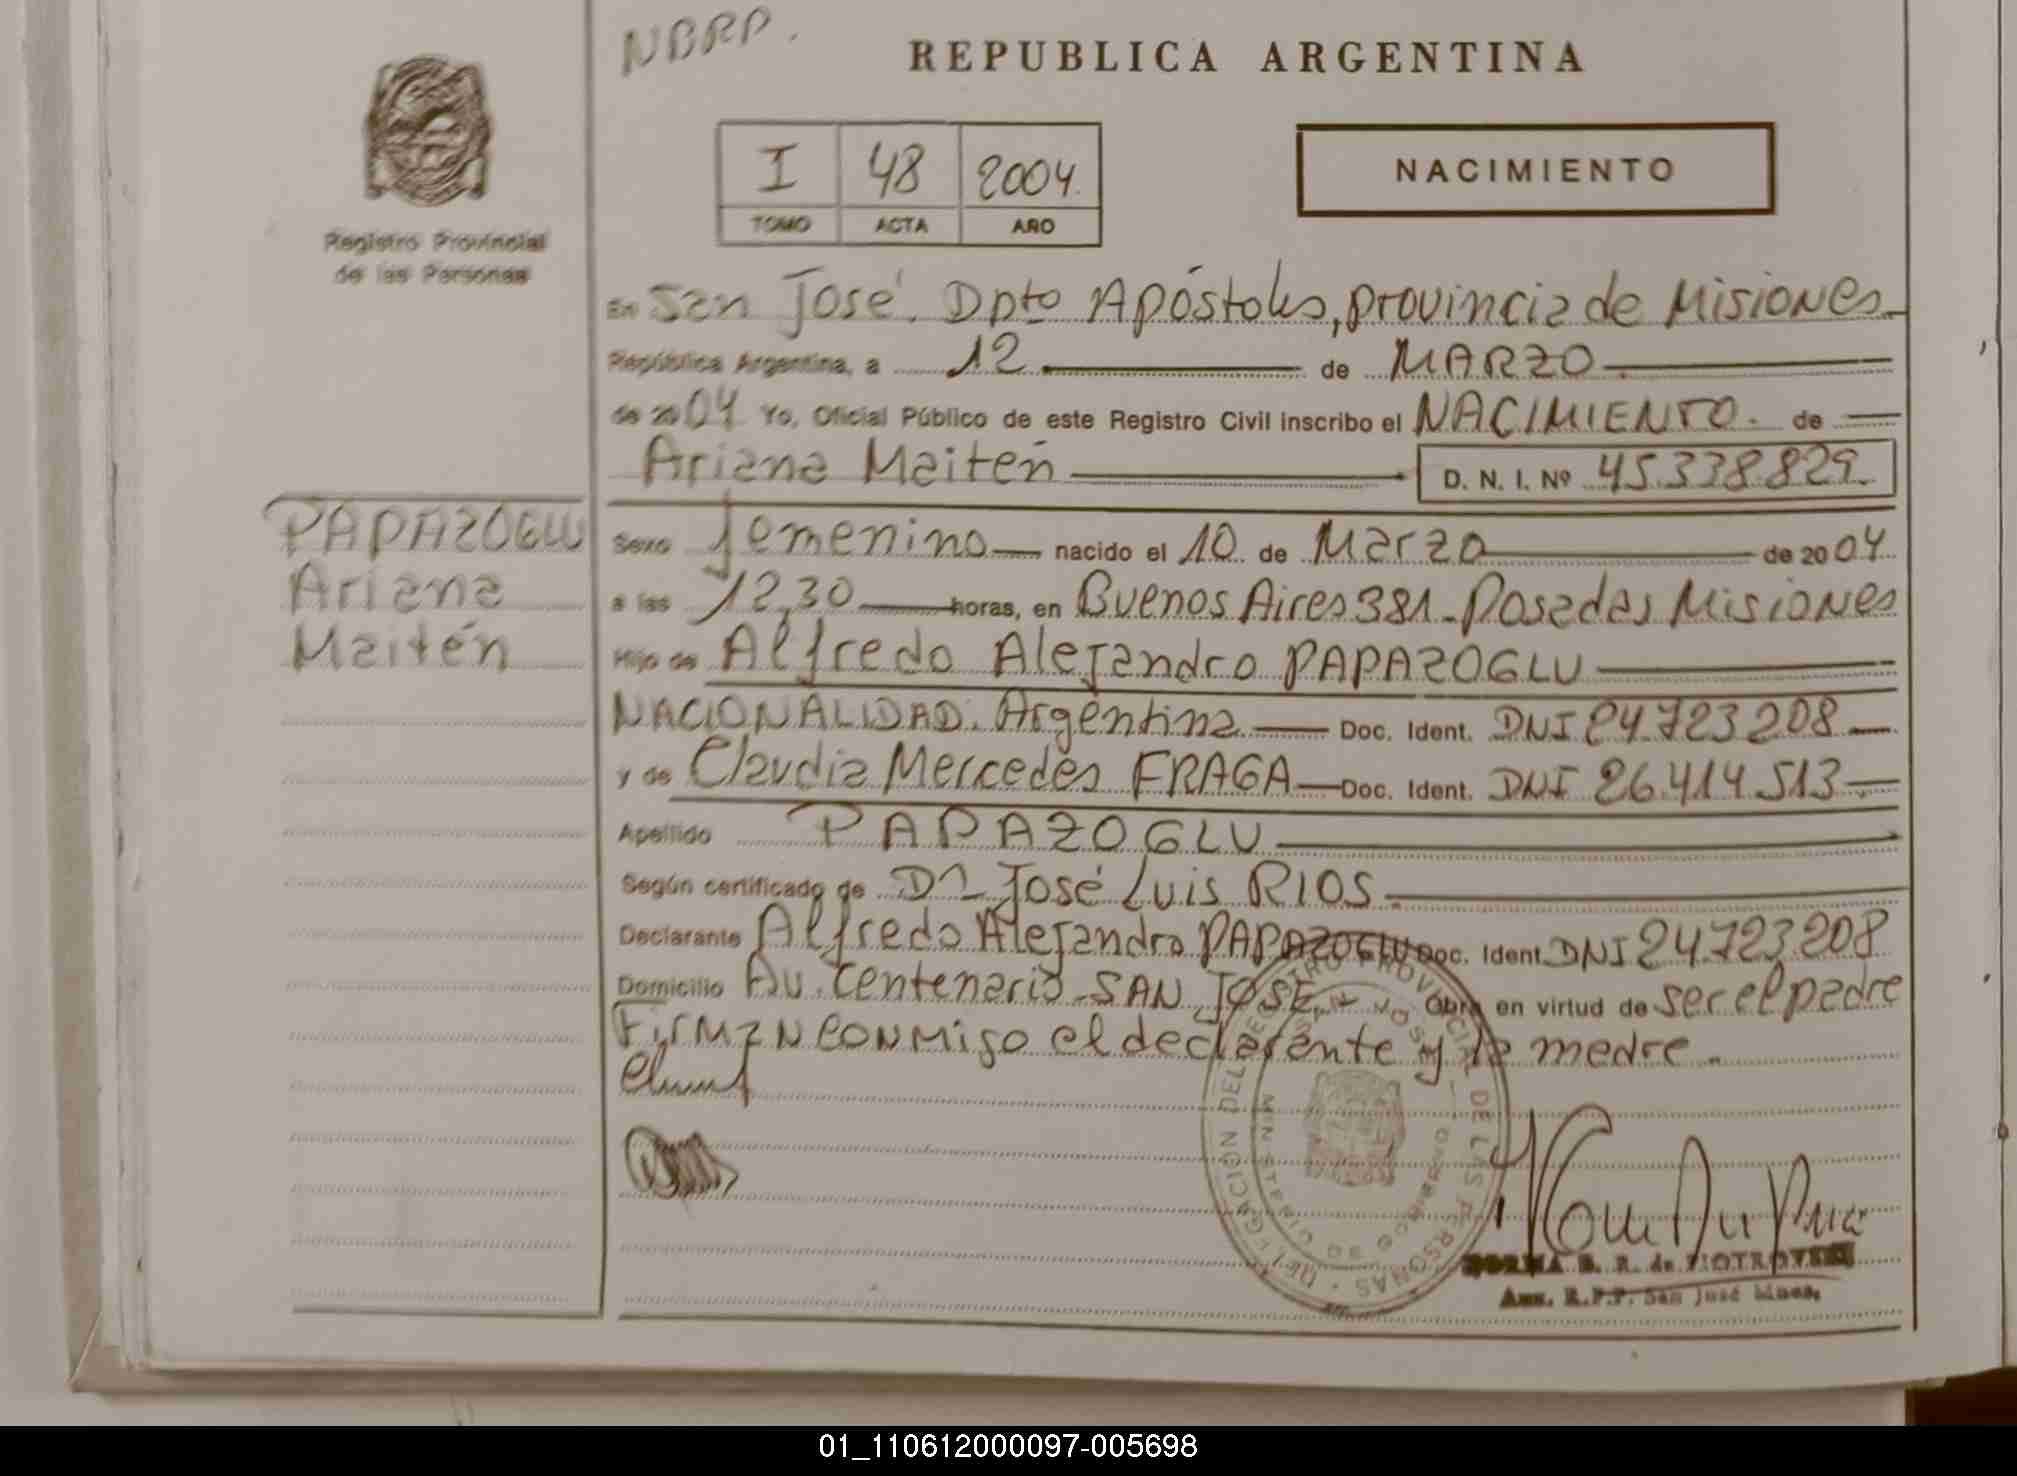 NBRP.
REPUBLICA ARGENTINA
I 48 2004.
TOMO ACTA AÑO
NACIMIENTO
Registro Provincial
de las Personas
En San José. Dpto Apóstoles, provincia de Misiones
República Argentina, a 12 de MARZO
de 2004 Yo, Oficial Público de este Registro Civil inscribo el NACIMIENTO. de
Ariana Maitén D. N. I. Nº 45.338.829.
PAPAZOGLU
Ariana
Maitén
Sexo femenino nacido el 10 de Marzo de 2004
a las 12,30 horas, en Buenos Aires 381 - Posadas Misiones
Hijo de Alfredo Alejandro PAPAZOGLU
NACIONALIDAD. Argentina Doc. Ident. DNI 24.723.208
y de Claudia Mercedes FRAGA Doc. Ident. DNI 26.414.513
Apellido PAPAZOGLU
Según certificado de Dr José Luis RIOS.
Declarante Alfredo Alejandro PAPAZOGLU Doc. Ident. DNI 24.723.208
Domicilio Av. Centenario - SAN JOSE Obra en virtud de ser el padre
Firman conmigo el declarante y la madre.
DELEGACION DEL REGISTRO PROVINCIAL DE LAS PERSONAS
NORMA B. R. de PIOTROVSKI
Aux. R.P.P. San José Mnes.
01_110612000097-005698